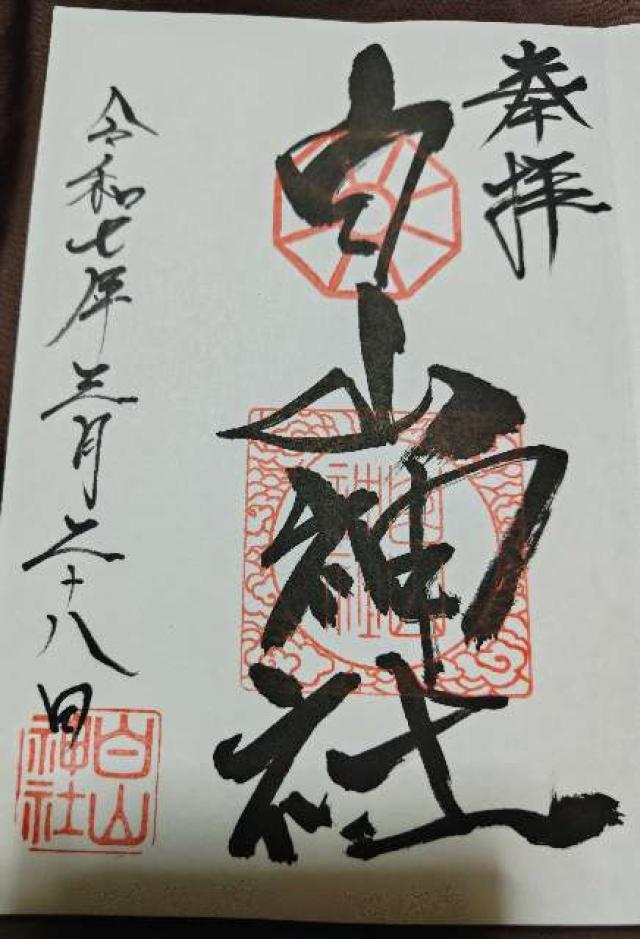 奉拝
白山神社
令和七年三月二十八日
白山
神社